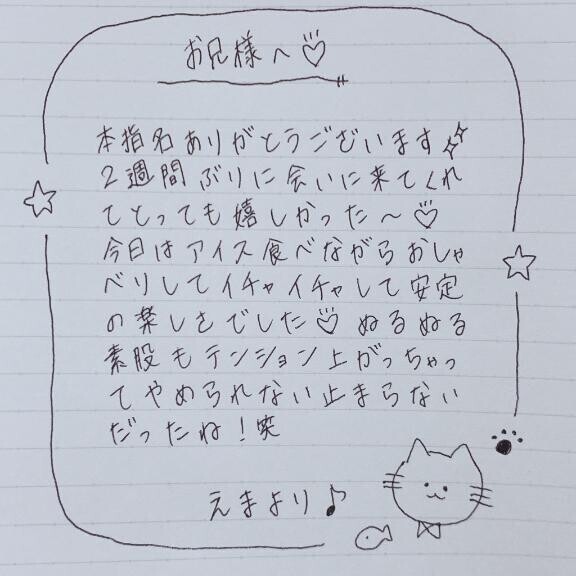 お兄様へ♡
本指名ありがとうございます✨
2週間ぶりに会いに来てくれ
てとっても嬉しかった〜♡
今日はアイス食べながらおしゃ
べりしてイチャイチャして安定
の楽しさでした♡ぬるぬる
素股もテンション上がっちゃっ
てやめられない止まらない
だったね！笑
えまより♪